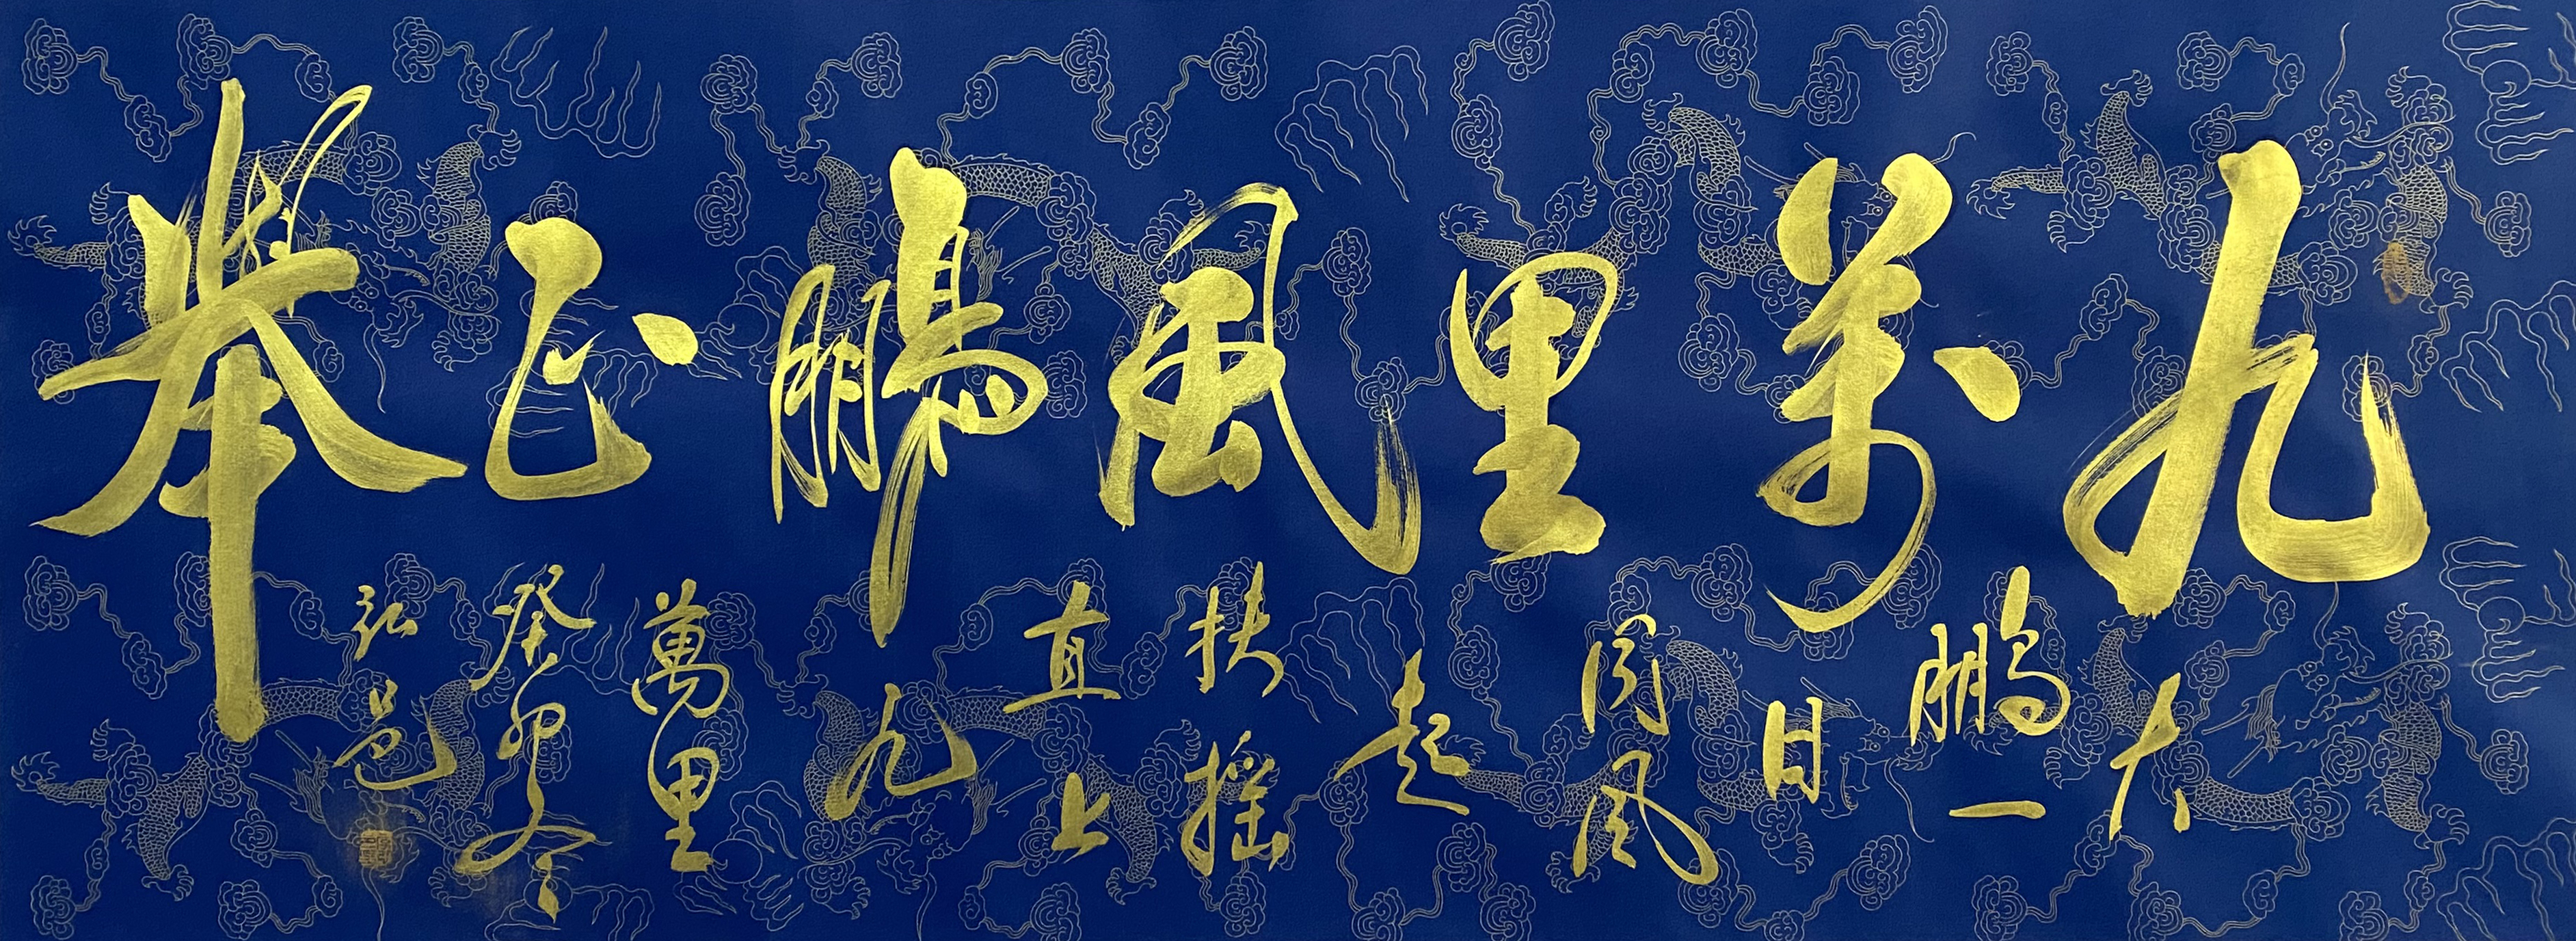 九萬里風鵬正舉
大
鵬一
日
同風
起
扶搖
直上
九
萬里
癸卯冬
弘邑